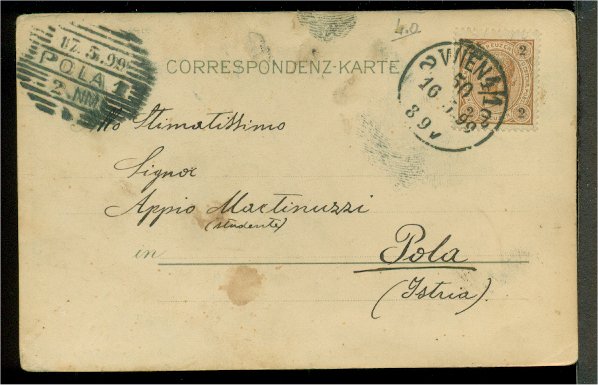 4.0
17.5.99
POLA 1
2.NM
CORRESPONDENZ-KARTE
2
2
WIEN 4/1
50
16.5.99
8 9V
Stimatissimo
Signor
Appio Martinuzzi
(studente)
in Pola
(Istria).